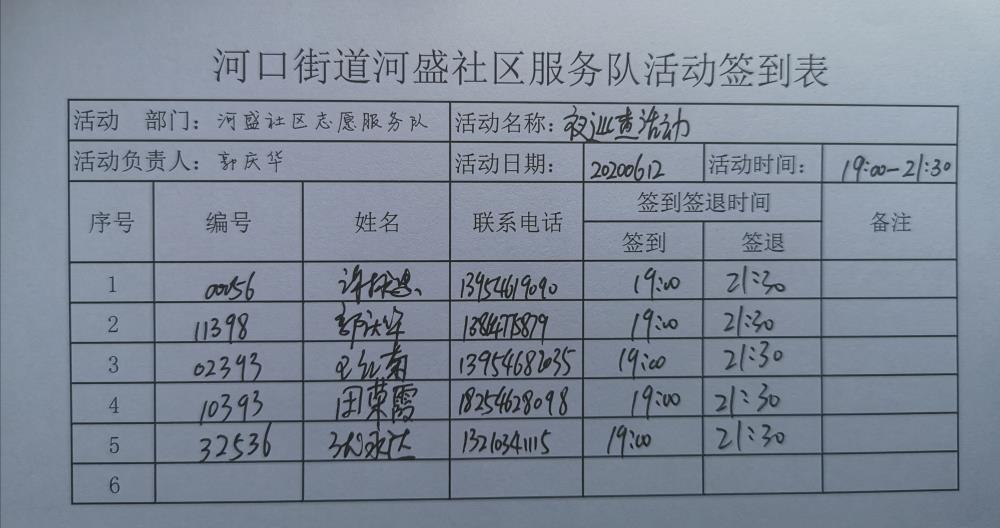 河口街道河盛社区服务队活动签到表
活动 部门：河盛社区志愿服务队 活动名称：夜巡查活动
活动负责人：郭庆华 活动日期：20200612 活动时间：19:00-21:30
序号 编号 姓名 联系电话 签到签退时间 备注
签到 签退
1 00056 13954619090 19:00 21:30
2 11398 郭庆华 19:00 21:30
3 02393 13954682035 19:00 21:30
4 10393 田荣霞 18254628098 19:00 21:30
5 32536 13210341115 19:00 21:30
6